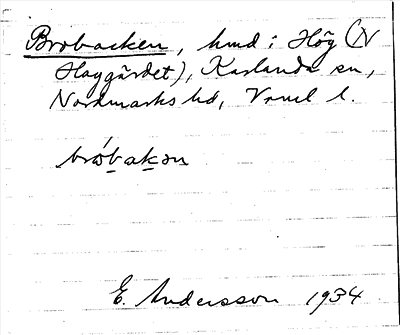 Brobacken, hmd i Hög (N
Haggärdet), Karlanda sn,
Nordmarks hd, Vrml l.
bróbakən
E. Andersson 1934